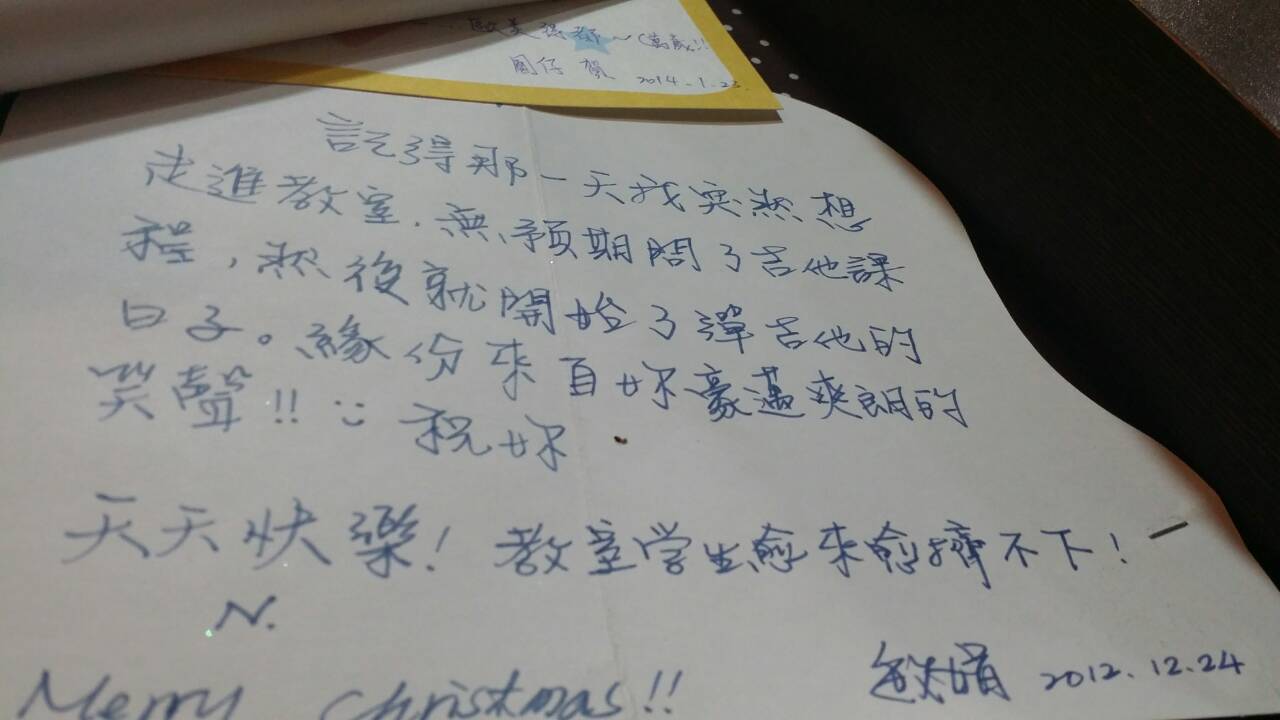 歐美得都~(萬歲!!
圓仔 賀 2014.1.23.
記得那一天我突然想
走進教室.無預期問了吉他課
程,然後就開始了彈吉他的
日子。緣份來自妳豪邁爽朗的
笑聲!! :) 祝妳
天天快樂!教室学生愈來愈擠不下!
N.
敏娟 2012.12.24
Merry Christmas!!